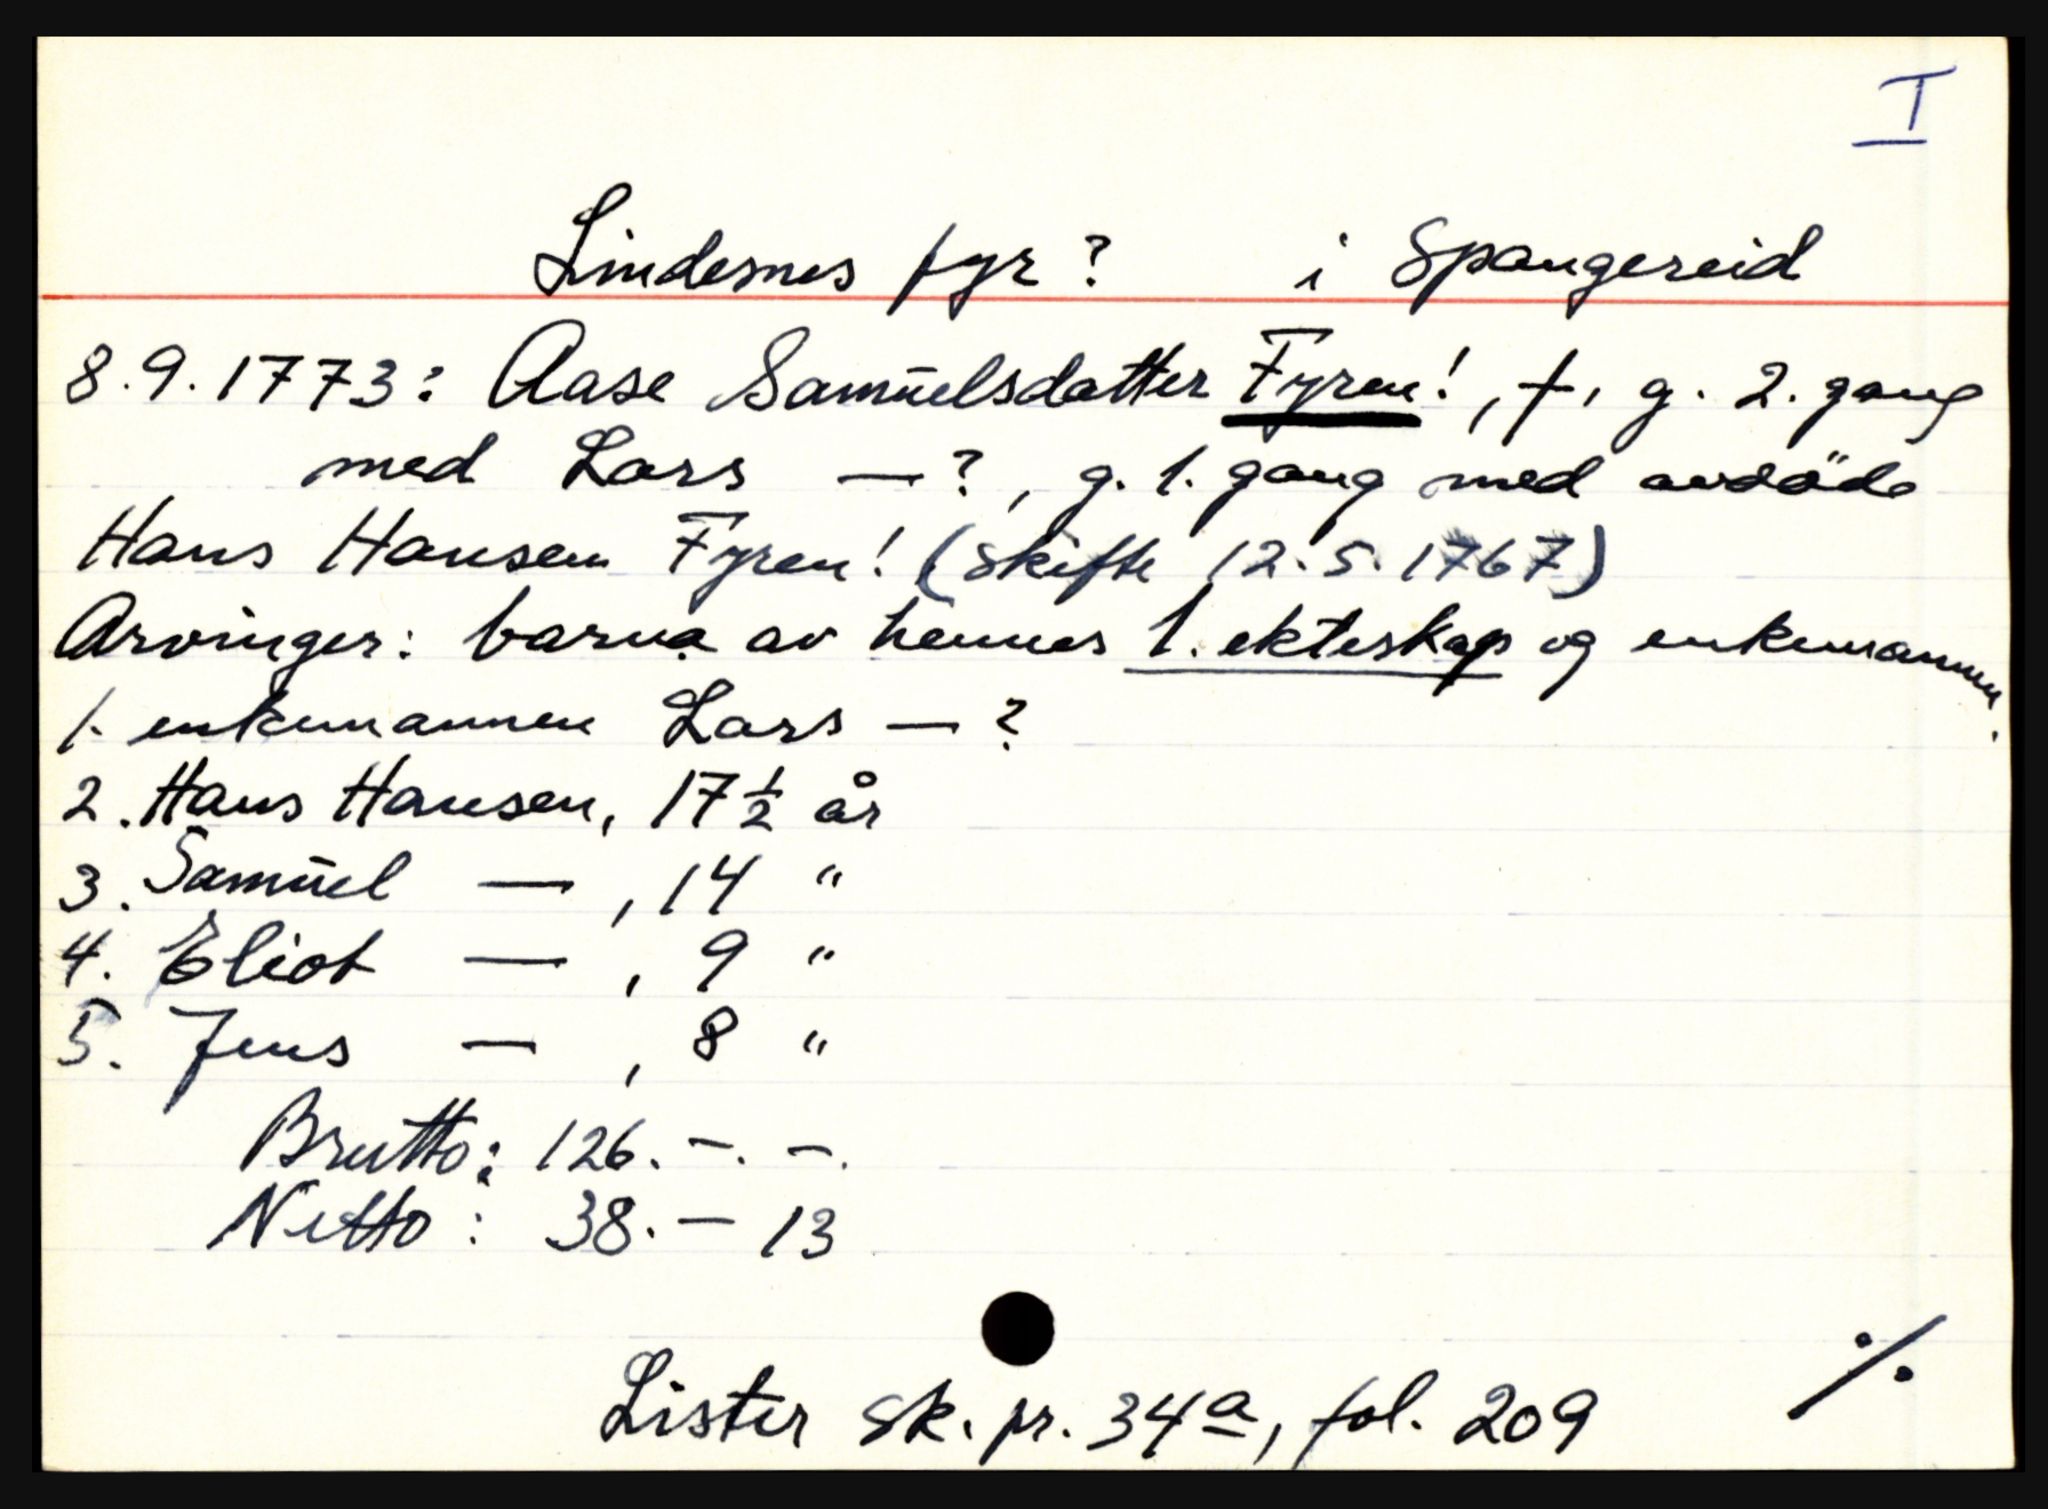 I
Lindesnes fyr? i Spangereid
8.9.1773: Aase Samūelsdatter Fyren!, †, g. 2. gang
med Lars — ?, g. 1. gang med avdöde
Hans Hansen Fyren! (skifte 12.5.1767)
Arvinger: barna av hennes 1. ekteskap og enkemannen.
1. enkemannen Lars — ?
2. Hans Hansen, 17 ½ år
3. Samūel — , 14 "
4. Eliot — , 9 "
5. Jens — , 8 "
Brutto: 126. –. –.
Netto: 38. – 13
Lister sk. pr. 34a, fol. 209
./.